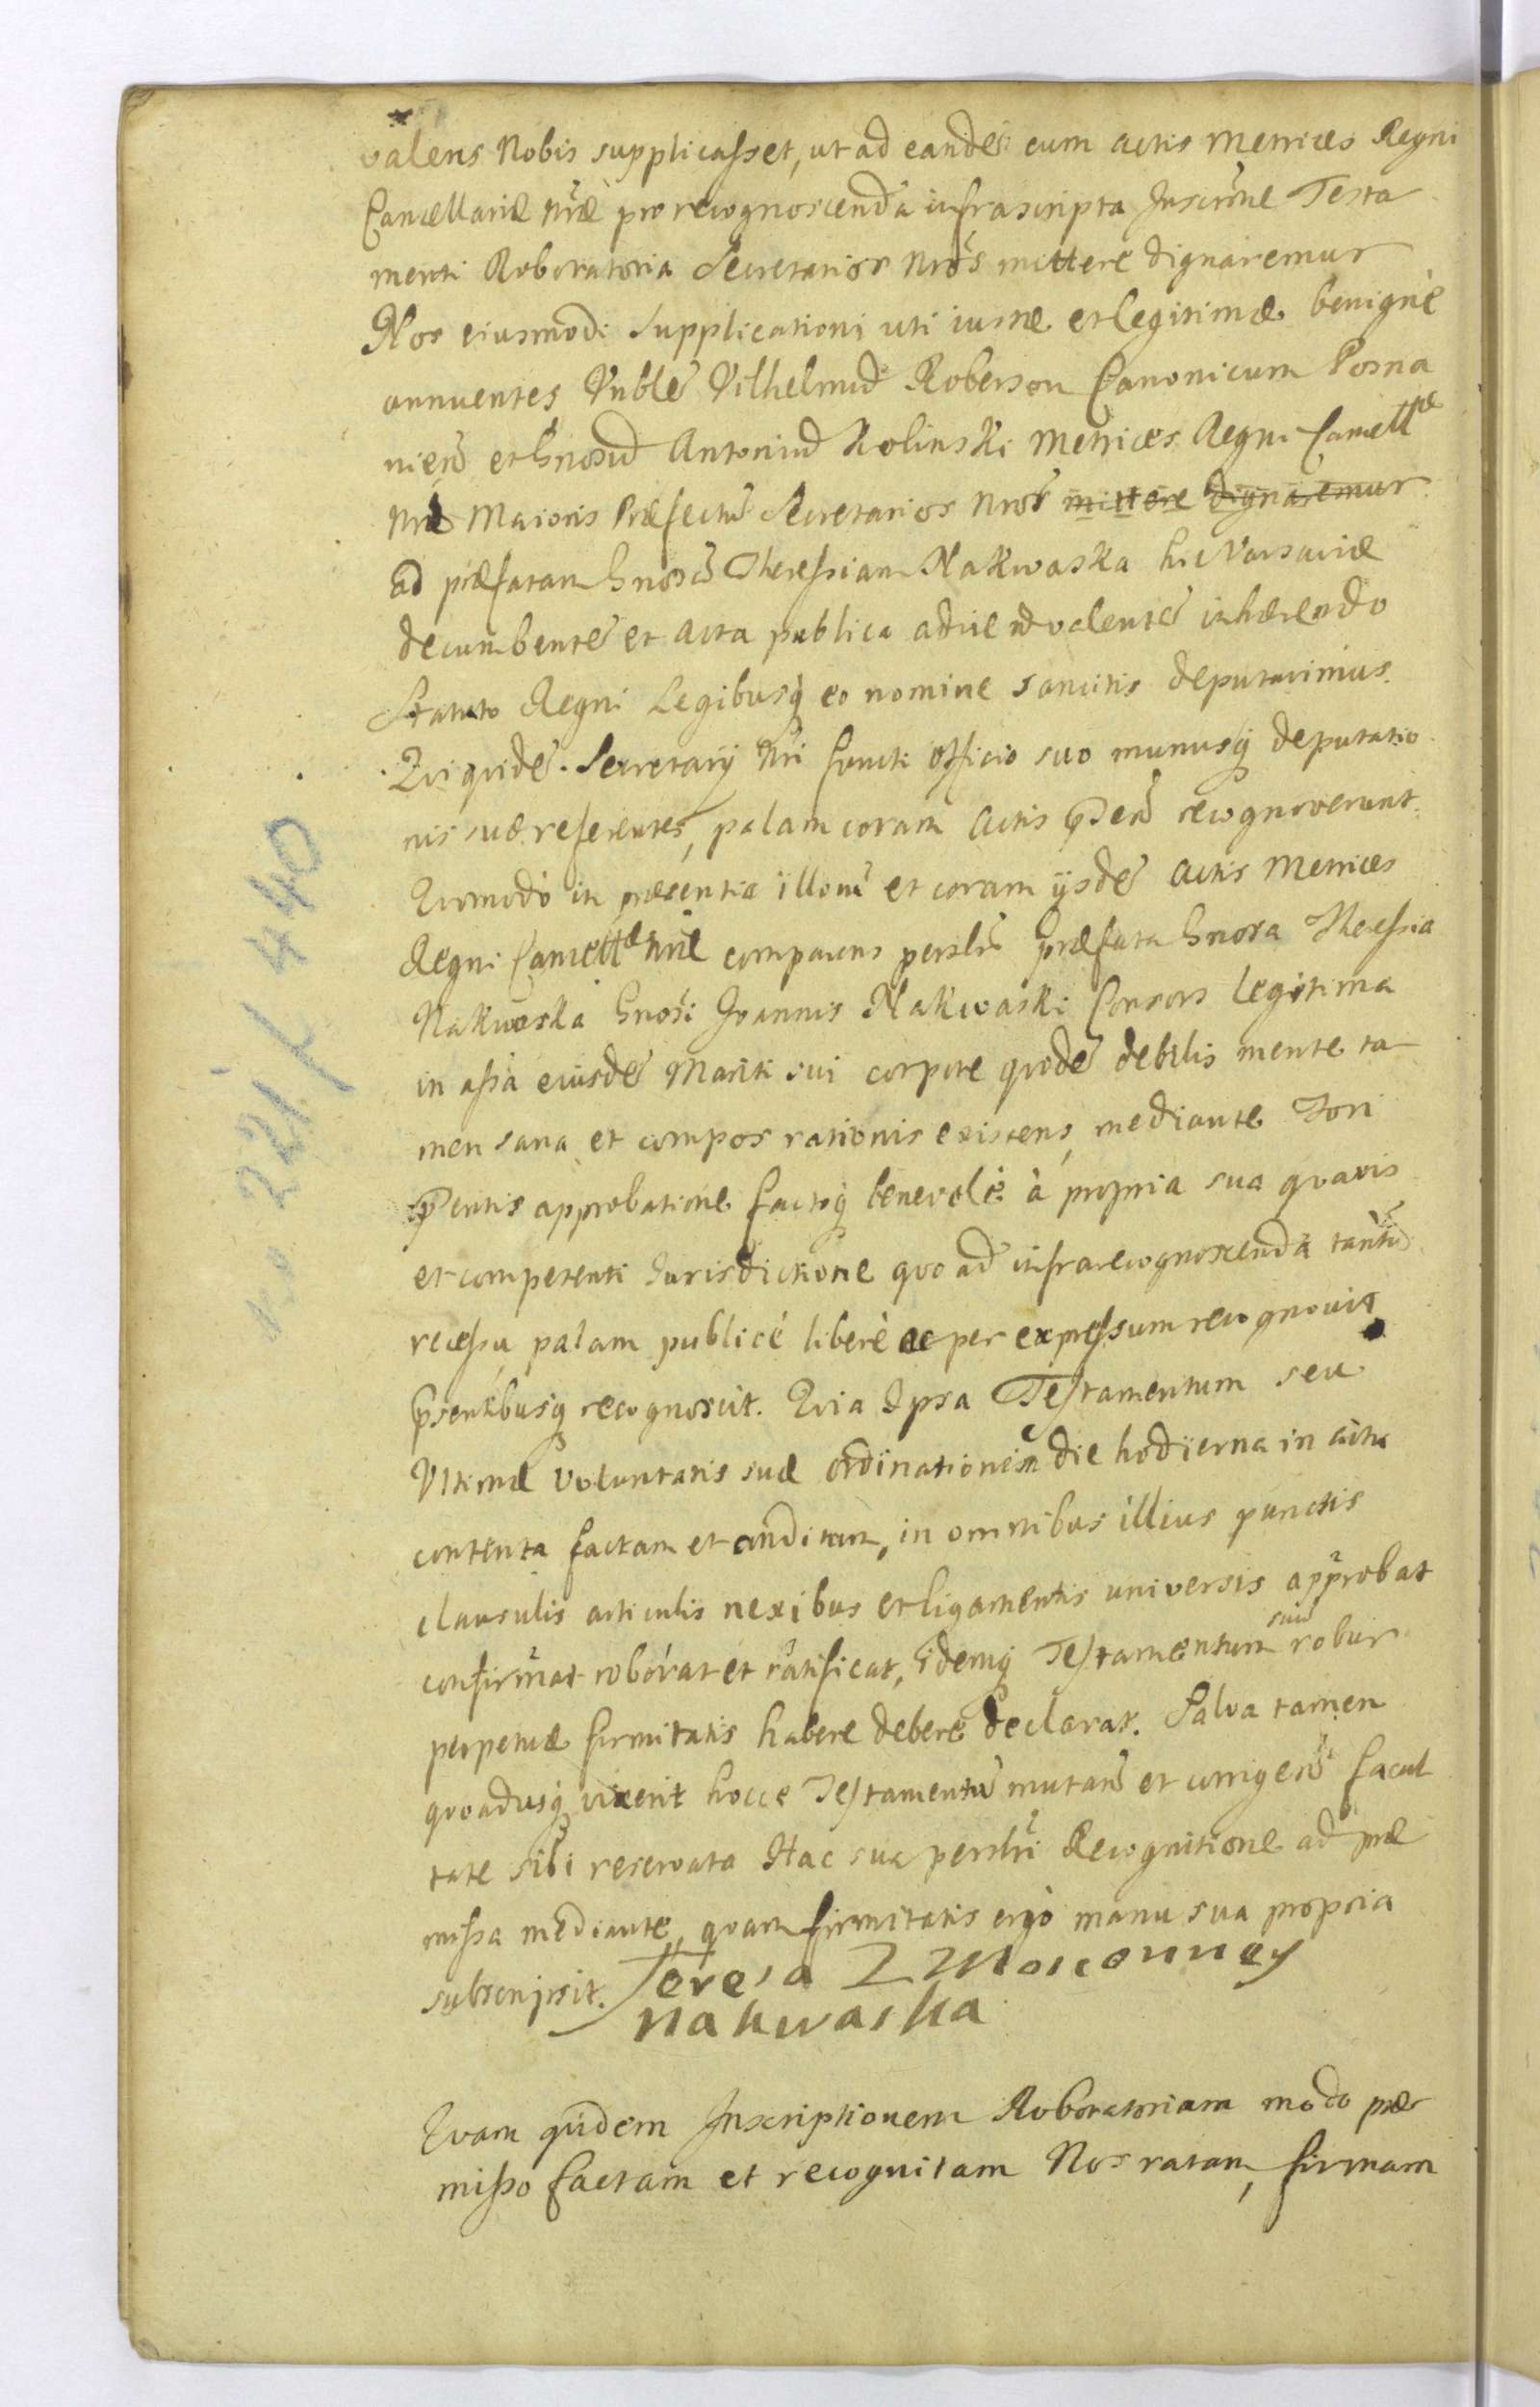 valens Nobis supplicasset, ut ad eandē cum actis Metrices Regni
Cancellariæ Nr̃æ pro recognoscenda infrascripta Inscr̃ne Testa
menti Roboratoria Secretarios Nr̃os mittere dignaremur
Nos eiusmodi supplicationi uti iustæ et legitimæ benignè
annuentes Vnblē Vilhelmū Roberson Canonicum Posna
nien̄ et Gnosū Antoniū Kolinski Metrices Regni Cancellæ
Nr̃æ Maioris Præfectū Secretarios Nr̃os mittere dignaremur
ad præfatam Gnosā Theressiam Nakwaska hic Varsaviæ
decumbentē et acta publica adire nō valentē inhærendo
Statuto Regni Legibusq́ eo nomine sancitis deputavimus.
Qui quidē Secretarij Nr̃i functi officio suo munusq́ deputatio
nis suæ referentes, palam coram Actis p̄sen̄ recognoverunt.
Quomodò in præsentia illorū et coram ijsdē Actis Metrices
Regni Cancellæ Nr̃æ comparens persl̃r præfata Gnosa Theressia
Nakwaska Gnosi Joannis Nakwaski Consors legitima
in assã eiusdē Mariti sui corpore quidē debilis mente ta
men sana et compos rationis existens, mediante Tori
p̄sentis approbatione factoq́ benevolè à propria sua quavis
et competenti Jurisdictione quo ad infrarecognoscenda tantū
recessu palam publicè liberè ac per expressum recognovit
p̄sentibusq́ recognoscit. Quia Ipsa Testamentum seu
Vltimæ voluntatis suæ ordinationem die hodierna in actu
contenta factam et conditam, in omnibus illius punctis
clausulis articulis nexibus et ligamentis universis approbat
confirmat roborat et ratificat, idemq́ Testamentum suū robur
perpetuæ firmitatis habere debere declarat. Salva tamen
quoadusq́ vixerit hocce Testamentū mutan̄ et corrigen̄ facul
tate sibi reservata Hac sua persl̃ri Recognitione ad præ
missa mediante, quam firmitatis ergò manu sua propria
subscripsit. Teresa Z Moriconnuey
Nakwaska
Quam quidem Inscriptionem Roboratoriam modo præ
misso factam et recognitam Nos ratam, firmam
221 / 440